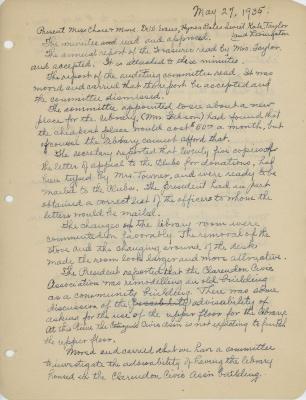 May 27, 1935.
Present Miss Chase, Mmes.
The minutes read and approved.
The annual report of the Treasurer read by Mrs. Taylor
and accepted. It is attached to these minutes.
The report of the auditing committee read. It was
moved and carried that the report be accepted and
the committee dismissed.
The committee appointed to see about a new
place for the library, (Mrs. ) had found that
the cheapest place would cost a month, but
of course the library cannot afford that.
The secretary reported that twenty five copies of
the letter of appeal to the Clubs for donations, had
been typed by Mrs. Towner, and were ready to be
mailed to the Clubs. The President had in part
obtained a correct list of the officers to whom the
letters would be mailed.
The changes in the library room were
commented on favorably. The removal of the
stove and the changing around of the desks
made the room look larger and more attractive.
The President reported that the Clarendon Civic
Association was remodelling an old building
as a community building. There was some
discussion of the advisability of
asking for the use of the upper floor for the library.
At this time the Citizens Civic Assn is not expecting to finish
the upper floor.
Moved and carried that we have a committee
to investigate the advisability of having the library
housed in the Clarendon Civic Assn building.